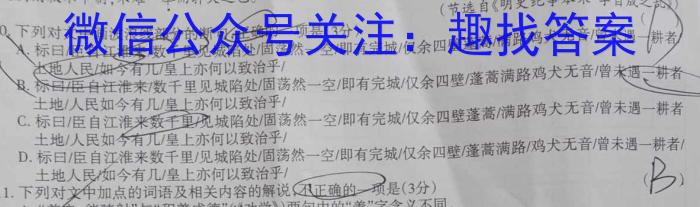 (节选自《明史纪事本末·李自成之乱》)
微信公众号关注：趣找答案
0. 下列对 项是(3分)
A. 标曰/臣自江淮来/数千里见城陷处/固荡然一空/即有完城/仅余四壁/蓬蒿满路鸡犬无音/曾未遇一耕者
土地人民/如今有几/皇上亦何以致治乎/
B. 标曰/臣自江淮来/数千里见城陷处/固荡然一空/即有完城/仅余四壁/蓬蒿满路/鸡犬无音/曾未遇一耕者
土地/人民如今有几/皇上亦何以致治乎/
C. 标曰/臣自江淮来数千里/见城陷处/固荡然一空/即有完城/仅余四壁/蓬蒿满路/鸡犬无音/曾未遇一耕者/
土地/人民如今有几/皇上亦何以致治乎/
D. 标曰/臣自江淮来数千里/见城陷处/固荡然一空/即有完城/仅余四壁/蓬蒿满路/鸡犬无音/曾未遇一耕者/
土地人民/如今有几/皇上亦何以致治乎/
B
1. 下列对文中加点的词语及相关内容的解说，不正确的一项是(3分)